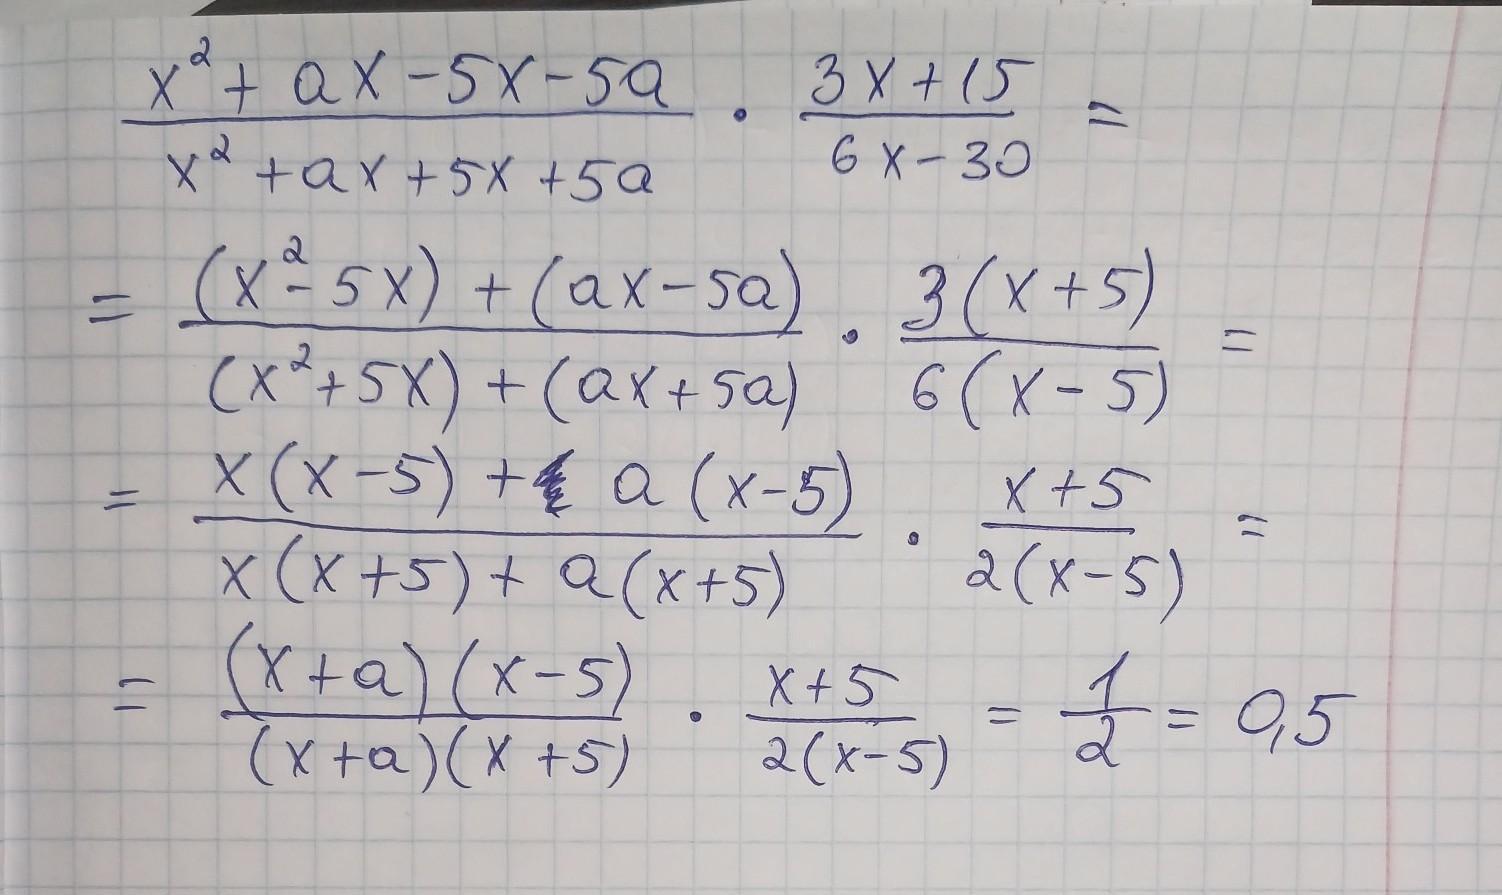 x² + ax - 5x - 5a / x² + ax + 5x + 5a · 3x + 15 / 6x - 30 =
= (x² - 5x) + (ax - 5a) / (x² + 5x) + (ax + 5a) · 3(x + 5) / 6(x - 5) =
= x(x - 5) + a(x - 5) / x(x + 5) + a(x + 5) · x + 5 / 2(x - 5) =
= (x + a)(x - 5) / (x + a)(x + 5) · x + 5 / 2(x - 5) = 1 / 2 = 0,5